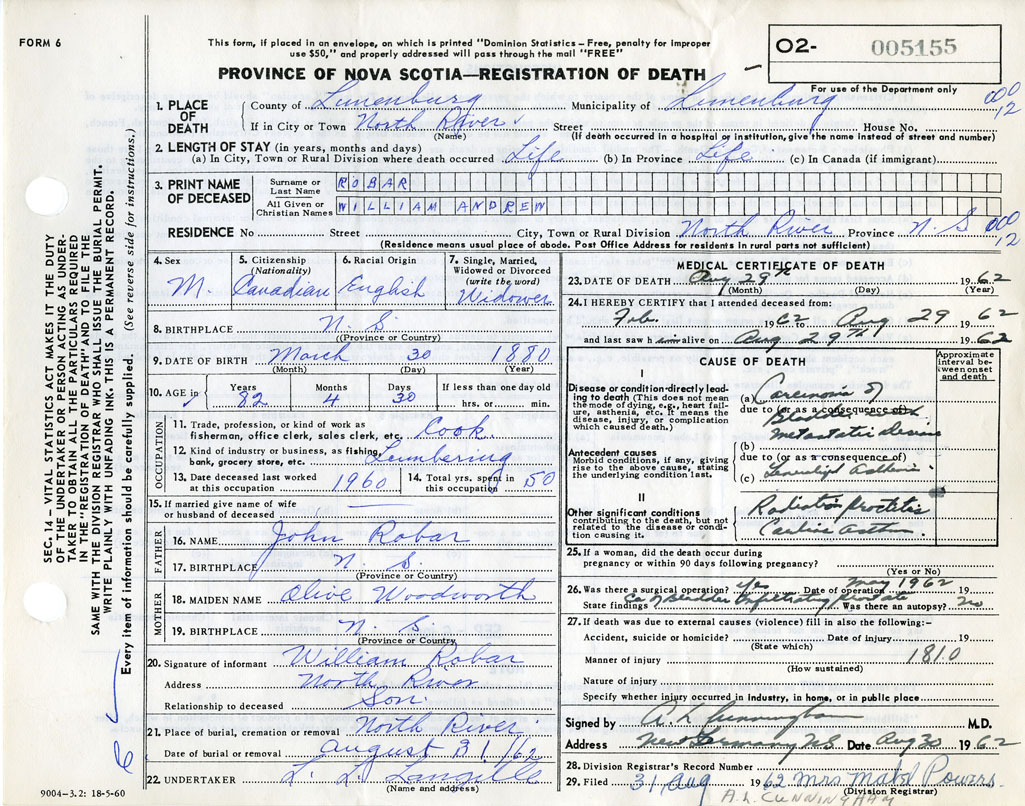 FORM 6
This form, if placed in an envelope, on which is printed "Dominion Statistics – Free, penalty for improper
use $50," and properly addressed will pass through the mail "FREE"
PROVINCE OF NOVA SCOTIA—REGISTRATION OF DEATH
O2- 005155
For use of the Department only
000
12
1. PLACE OF DEATH
County of Lunenburg Municipality of Lunenburg
If in City or Town North River Street House No.
(Name) (If death occurred in a hospital or institution, give the name instead of street and number)
2. LENGTH OF STAY (in years, months and days)
(a) In City, Town or Rural Division where death occurred Life (b) In Province Life (c) In Canada (if immigrant)
3. PRINT NAME OF DECEASED
Surname or Last Name ROBAR
All Given or Christian Names WILLIAM ANDREW
RESIDENCE No Street City, Town or Rural Division North River Province N. S
000
12
(Residence means usual place of abode. Post Office Address for residents in rural parts not sufficient)
4. Sex
M.
5. Citizenship
(Nationality)
Canadian
6. Racial Origin
English
7. Single, Married,
Widowed or Divorced
(write the word)
Widower
8. BIRTHPLACE N. S.
(Province or Country)
9. DATE OF BIRTH March 30 1880
(Month) (Day) (Year)
10. AGE in
Years 82
Months 4
Days 30
If less than one day old
hrs. or min.
OCCUPATION
11. Trade, profession, or kind of work as
fisherman, office clerk, sales clerk, etc. Cook.
12. Kind of industry or business, as fishing,
bank, grocery store, etc. Lumbering
13. Date deceased last worked
at this occupation 1960
14. Total yrs. spent in
this occupation 50
15. If married give name of wife
or husband of deceased
FATHER
16. NAME John Robar
17. BIRTHPLACE N. S.
(Province or Country)
MOTHER
18. MAIDEN NAME Olive Woodworth
19. BIRTHPLACE N. S.
(Province or Country)
20. Signature of informant William Robar
Address North River
Relationship to deceased Son.
21. Place of burial, cremation or removal North River
Date of burial or removal August 31/62
22. UNDERTAKER L. L. Langille
(Name and address)
9004-3.2: 18-5-60
SEC. 14 – VITAL STATISTICS ACT MAKES IT THE DUTY
OF THE UNDERTAKER OR PERSON ACTING AS UNDER-
TAKER TO OBTAIN ALL THE PARTICULARS REQUIRED
IN THE "REGISTRATION OF DEATH" AND TO FILE THE
SAME WITH THE DIVISION REGISTRAR WHO SHALL ISSUE THE BURIAL PERMIT.
WRITE PLAINLY WITH UNFADING INK. THIS IS A PERMANENT RECORD.
Every item of information should be carefully supplied. (See reverse side for instructions.)
MEDICAL CERTIFICATE OF DEATH
23. DATE OF DEATH Aug 29th 1962
(Month) (Day) (Year)
24. I HEREBY CERTIFY that I attended deceased from:
Feb. 1962 to Aug 29 1962
and last saw him alive on Aug 29th 1962
CAUSE OF DEATH
Approximate
interval be-
tween onset
and death
I
Disease or condition-directly lead-
ing to death (This does not mean
the mode of dying, e.g., heart fail-
ure, asthenia, etc. It means the
disease, injury, or complication
which caused death.)
(a) Carcinoma of
due to (or as a consequence of)
Bladder with
metastatic disease
Antecedent causes
Morbid conditions, if any, giving
rise to the above cause, stating
the underlying condition last.
(b)
due to (or as a consequence of)
(c)
II
Other significant conditions
contributing to the death, but not
related to the disease or condi-
tion causing it.
Radiation proctitis
25. If a woman, did the death occur during
pregnancy or within 90 days following pregnancy?
(Yes or No)
26. Was there a surgical operation? Yes Date of operation May 1962
State findings Ca of Bladder infiltrating prostate Was there an autopsy? No
27. If death was due to external causes (violence) fill in also the following:–
Accident, suicide or homicide? Date of injury 19
(State which)
Manner of injury 181.0
(How sustained)
Nature of injury
Specify whether injury occurred in industry, in home, or in public place
Signed by A L Cunningham M.D.
Address New Germany NS Date Aug 30 1962
28. Division Registrar's Record Number
29. Filed 31 Aug 1962 Mrs Mabel Powers.
(Division Registrar)
A.L. CUNNINGHAM